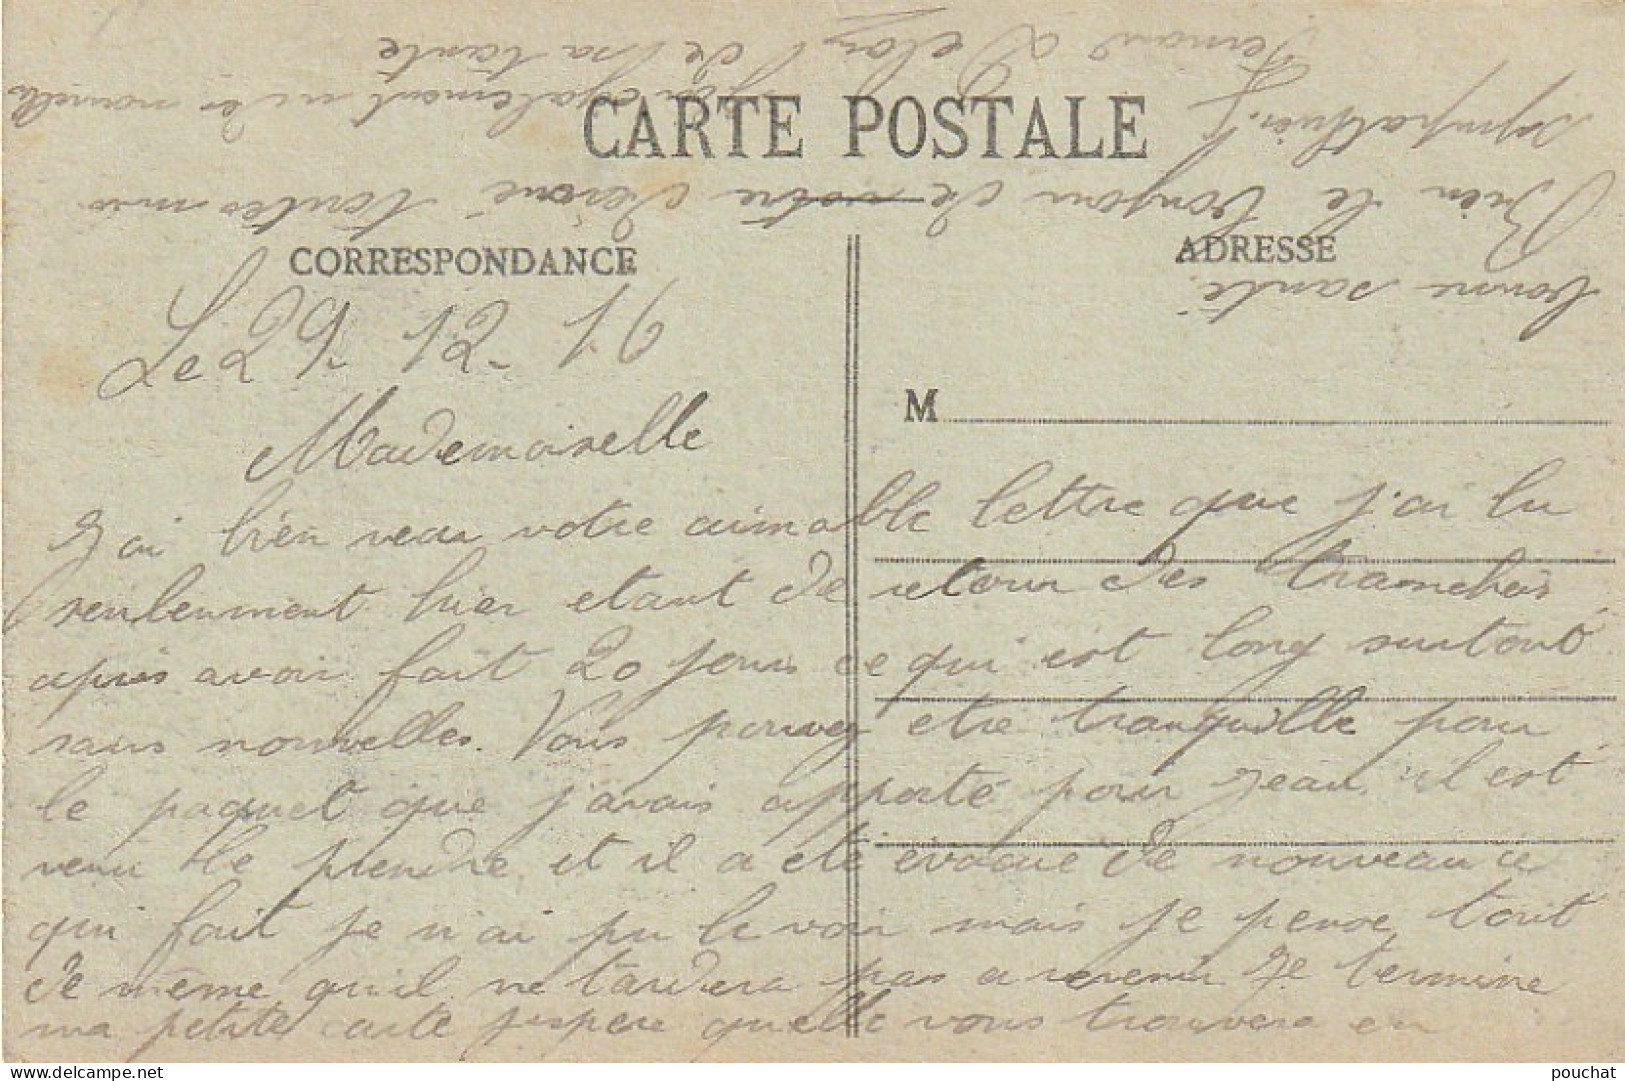 CARTE POSTALE
CORRESPONDANCE
ADRESSE
M
Le 29-12-16
Mademoiselle
J'ai bien recu votre aimable lettre que j'ai lu
seulenment hier etant de retour des tranchées
apris avoir fait 20 jours ce qui est long surtout
sans nouvelles. Vous pouvez etre tranquille pour
le paquet que j'avais apporté pour Jean, il est
venu le prendre et il a été évacué de nouveau ce
qui fait je n'ai pu le voir mais je pense tout
de même qu'il ne tardera pas a revenir. Je termine
ma petite carte j'espere quelle vous trouvera en
bonne santé.
Bien le bonjour de votre devoué toutes mes
sympathies.
Fernand Delay
également de nouvelle
de sa tante
pouchat